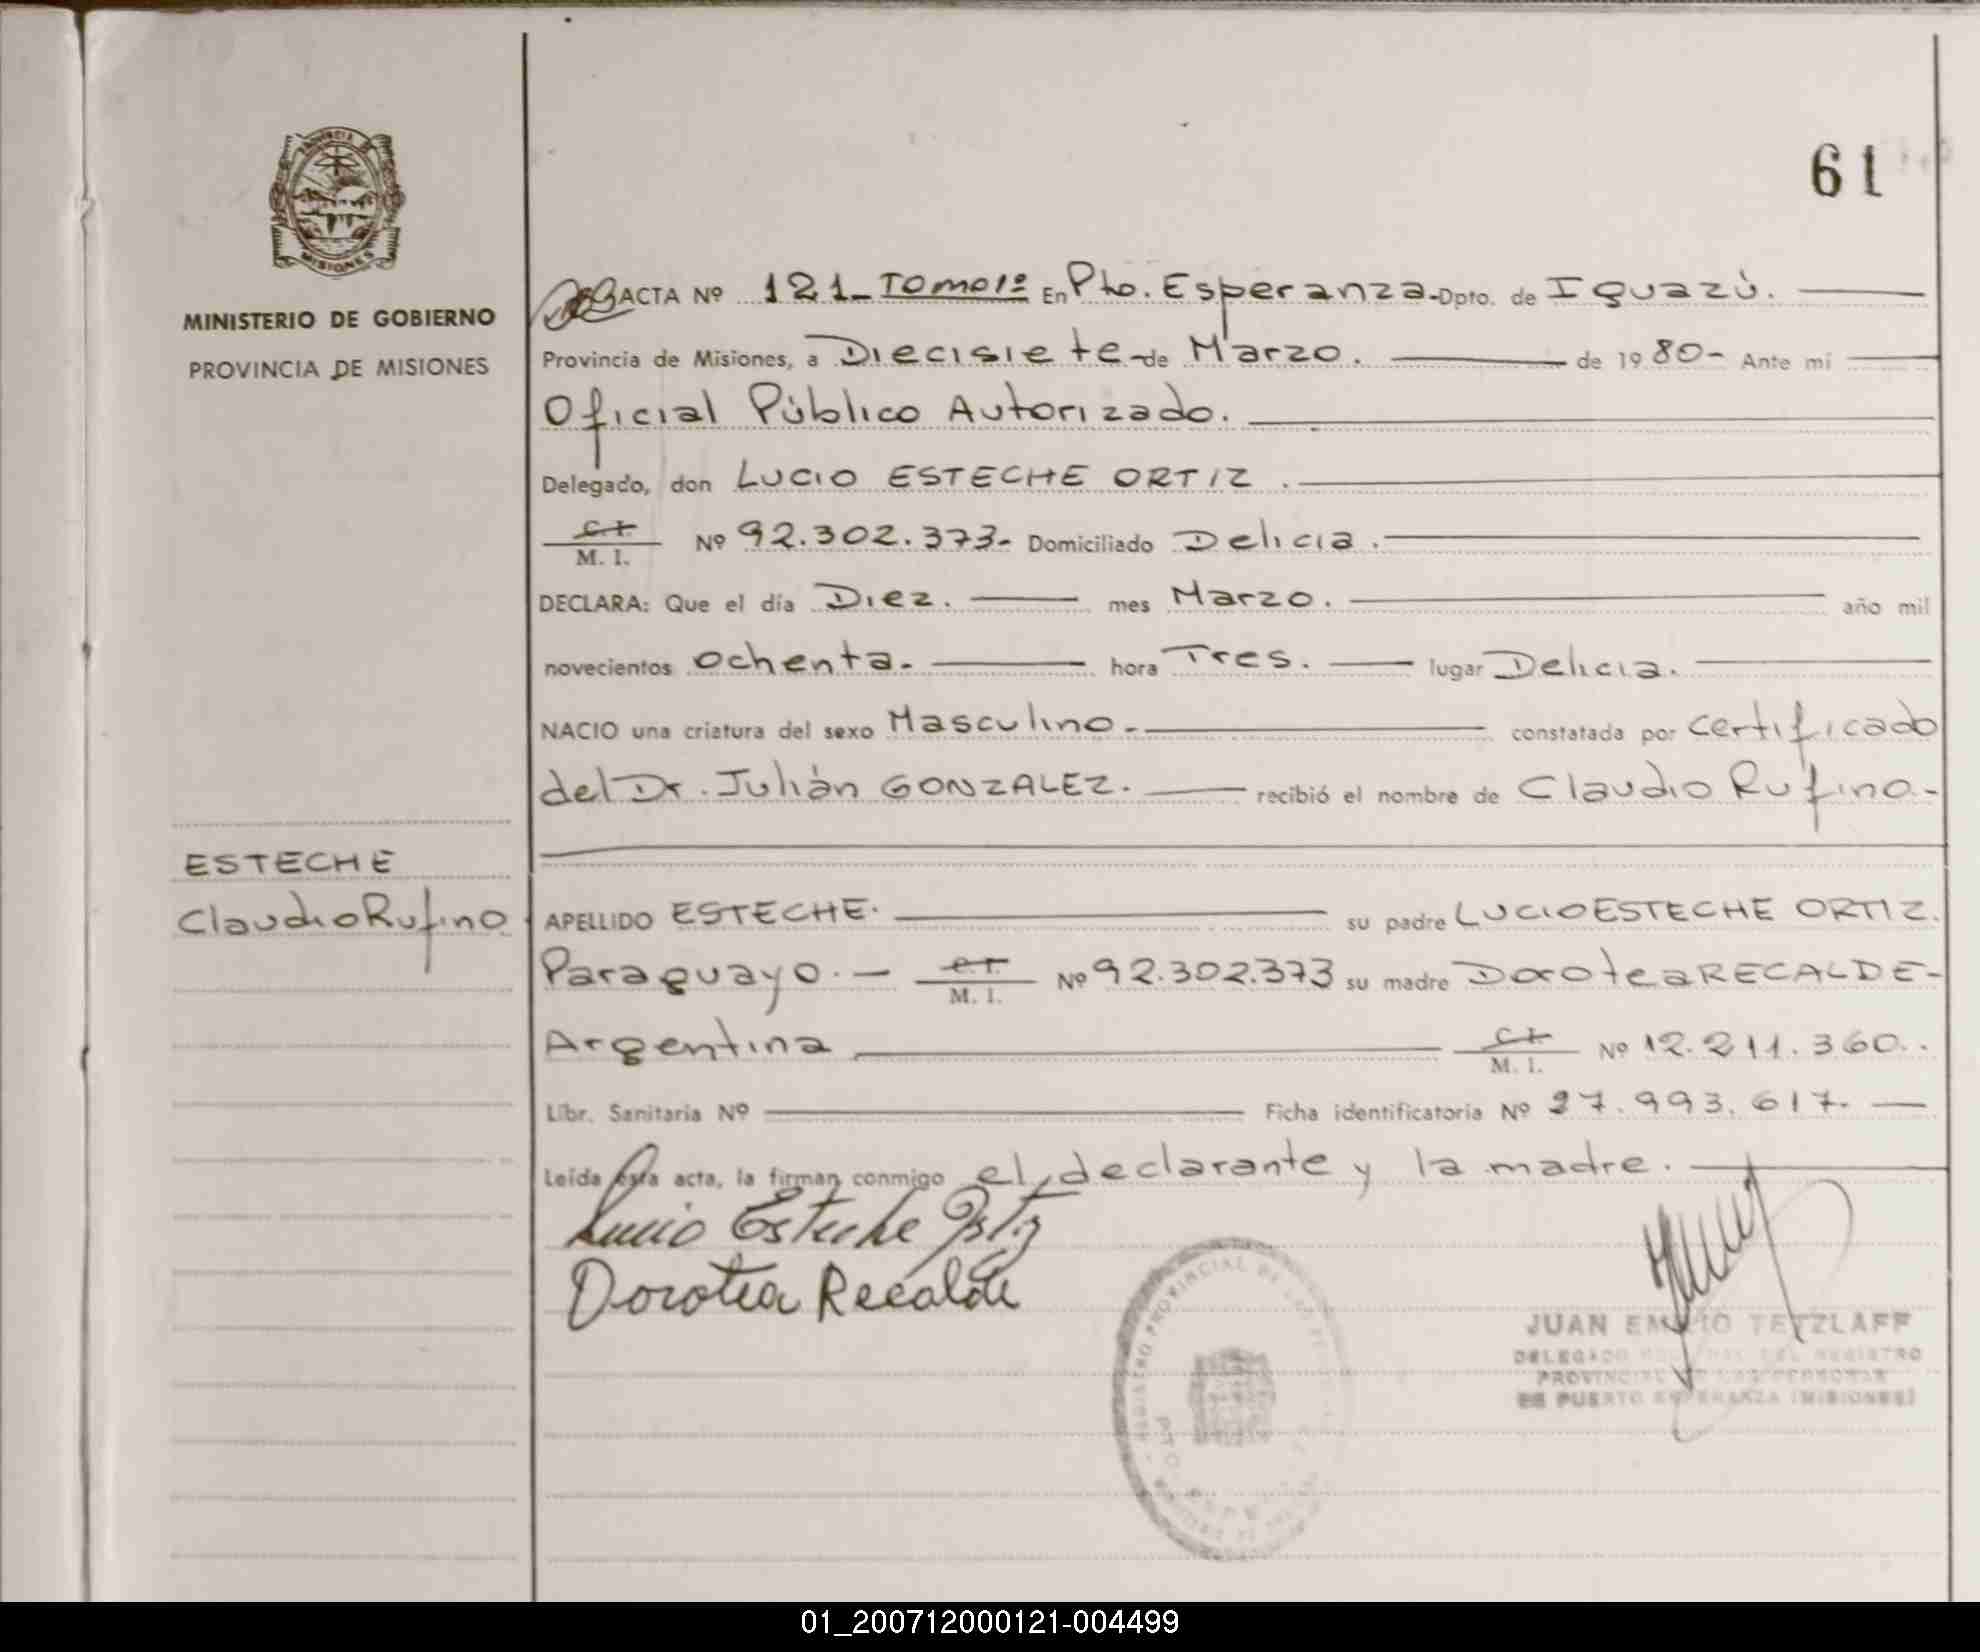 61
PROVINCIA DE
MISIONES
MINISTERIO DE GOBIERNO
PROVINCIA DE MISIONES
ACTA Nº 121_ Tomo 1º En Pto. Esperanza - Dpto. de Iguazú.
Provincia de Misiones, a Diecisiete - de Marzo. de 1980 - Ante mi
Oficial Público Autorizado.
Delegado, don LUCIO ESTECHE ORTIZ.
C.I.
M. I. Nº 92.302.373 - Domiciliado Delicia.
DECLARA: Que el día Diez. mes Marzo. año mil
novecientos ochenta. hora Tres. lugar Delicia.
NACIO una criatura del sexo Masculino - constatada por certificado
del Dr. Julián GONZALEZ. recibió el nombre de Claudio Rufino -
ESTECHE
Claudio Rufino
APELLIDO ESTECHE. su padre LUCIO ESTECHE ORTIZ.
Paraguayo. - C.I. M. I. Nº 92.302.373 su madre Dorotea RECALDE -
Argentina C.I. M. I. Nº 12.211.360..
Libr. Sanitaria Nº Ficha identificatoria Nº 27.993.617. -
Leída esta acta, la firman conmigo el declarante y la madre.
Lucio Esteche Ortiz
Dorotea Recalde
REGISTRO PROVINCIAL DE LAS
PTO
JUAN EMILIO TETZLAFF
DELEGADO DEL REGISTRO
PROVINCIAL DE LAS PERSONAS
DE PUERTO ESPERANZA (MISIONES)
01_200712000121-004499